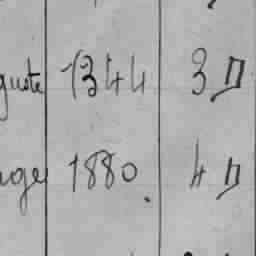 guste 1344 3 D
ge 1880. 4 D